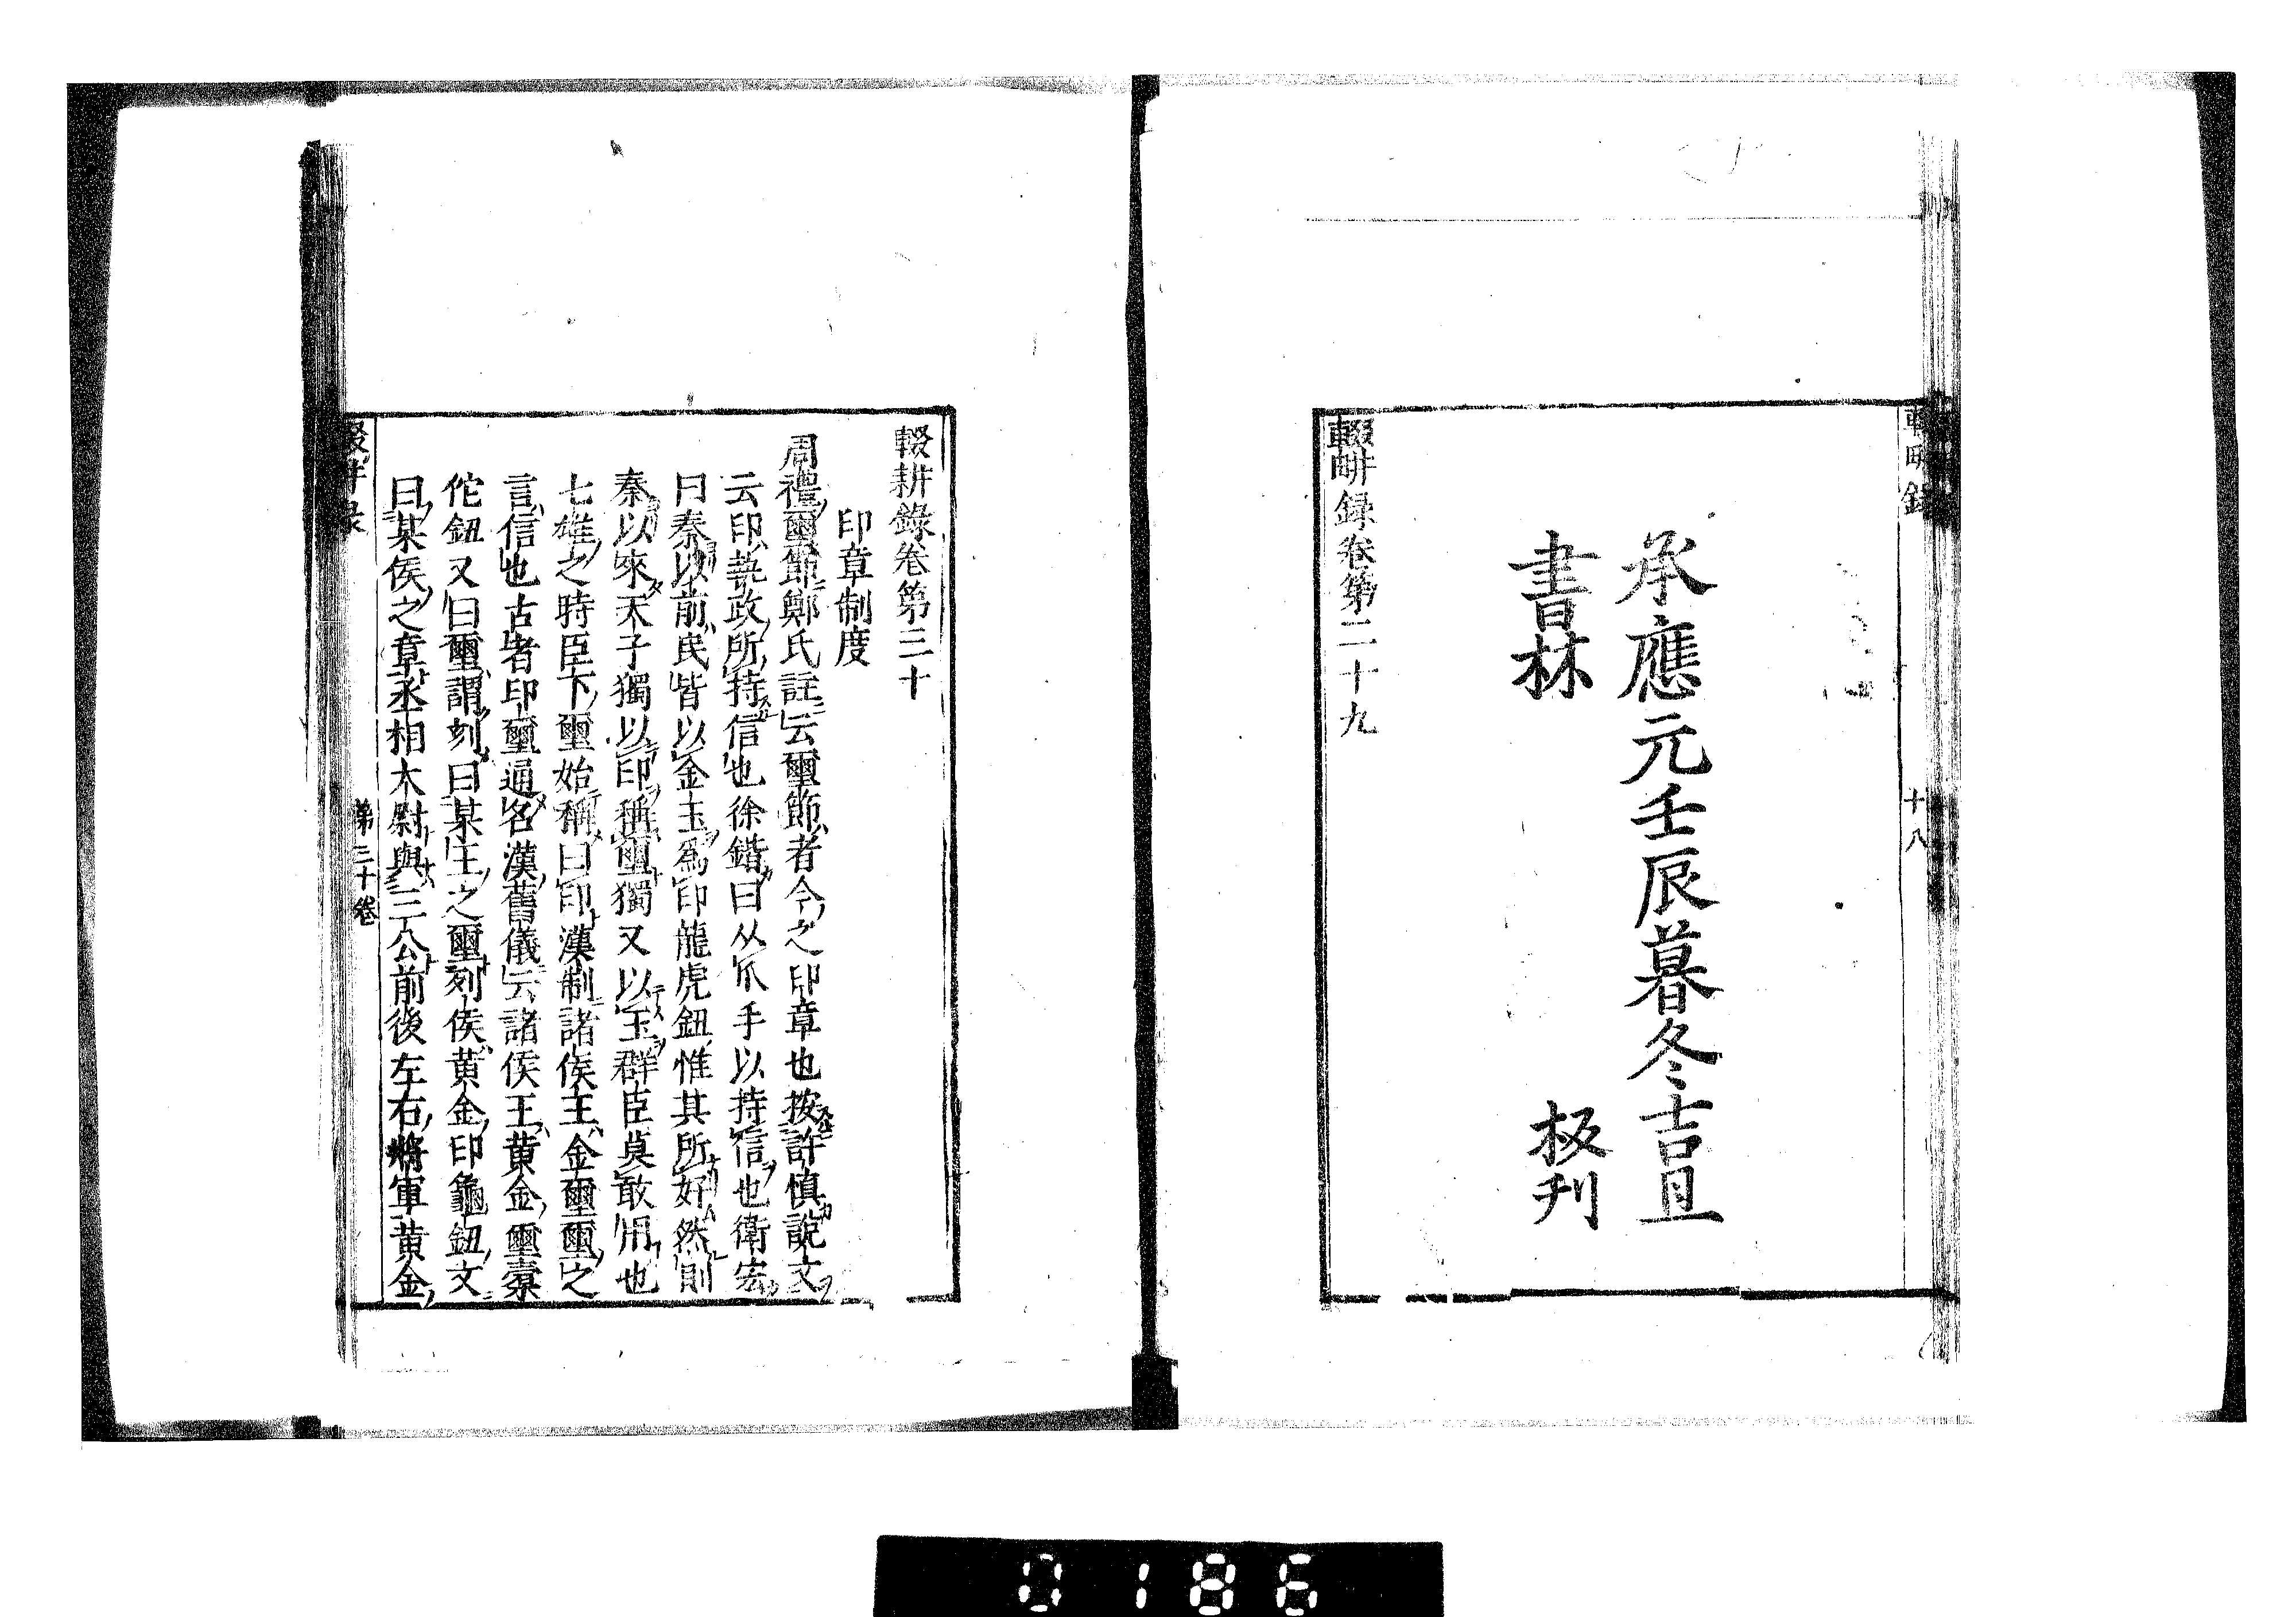 輟畊録
十八
承應元壬辰暮冬吉旦
書林　板刋
輟畊録卷第二十九
輟耕錄卷第三十
印章制度
周禮璽節鄭氏註云璽節者今之印章也按許慎說文
云印執政所持信也徐鍇曰从爪手以持信也衛宏
曰秦以前民皆以金玉爲印龍虎鈕惟其所好然則
秦以來天子獨以印稱璽獨又以玉群臣莫敢用也
七雄之時臣下璽始稱曰印漢制諸侯王金璽璽之
言信也古者印璽通名漢舊儀云諸侯王黄金璽橐
佗鈕又曰璽謂刻曰某王之璽列侯黄金印龜鈕文
曰某侯之章丞相太尉與三公前後左右將軍黄金
輟耕录
第三十卷
0186